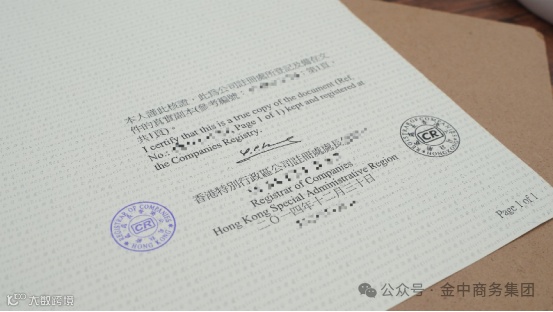 本人謹此核證,此為公司註冊處所登記及備存文
件的真實副本(參考編號: 第1頁,
共1頁)。
I certify that this is a true copy of the document (Ref.
No.: Page 1 of 1) kept and registered at
the Companies Registry.
香港特別行政區公司註冊處處長
Registrar of Companies
Hong Kong Special Administrative Region
二〇一四年十二月三十日
REGISTRAR OF COMPANIES
CR
HONG KONG
REGISTRAR OF COMPANIES
CR
HONG KONG
Page 1 of 1
大数跨境
公众号 · 金中商务集团